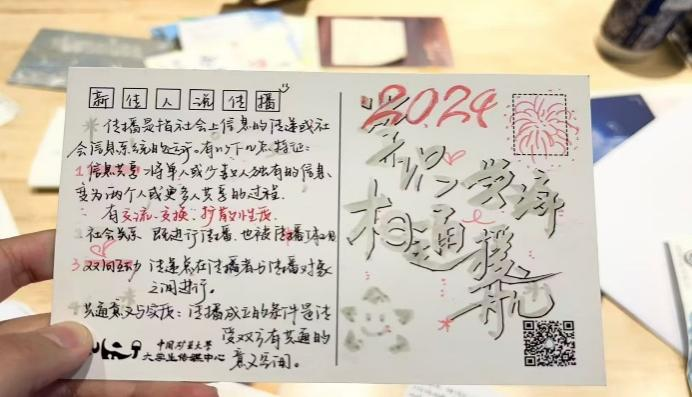 新传人说传播
传播是指社会上信息的传递或社
会信息系统的运行。有以下几点特征：
1 信息共享：将单人或少数人独有的信息、
变为两个人或更多人共享的过程.
有交流、交换、扩散性质
社会关系 既进行传播、也被传播
3 双向互动 传递是在传播者与传播对象
之间进行。
共通意义与空间：传播成立的条件是传
受双方有共通的
意义空间。
中国矿业大学
大学生传媒中心
2024
学海
相遇